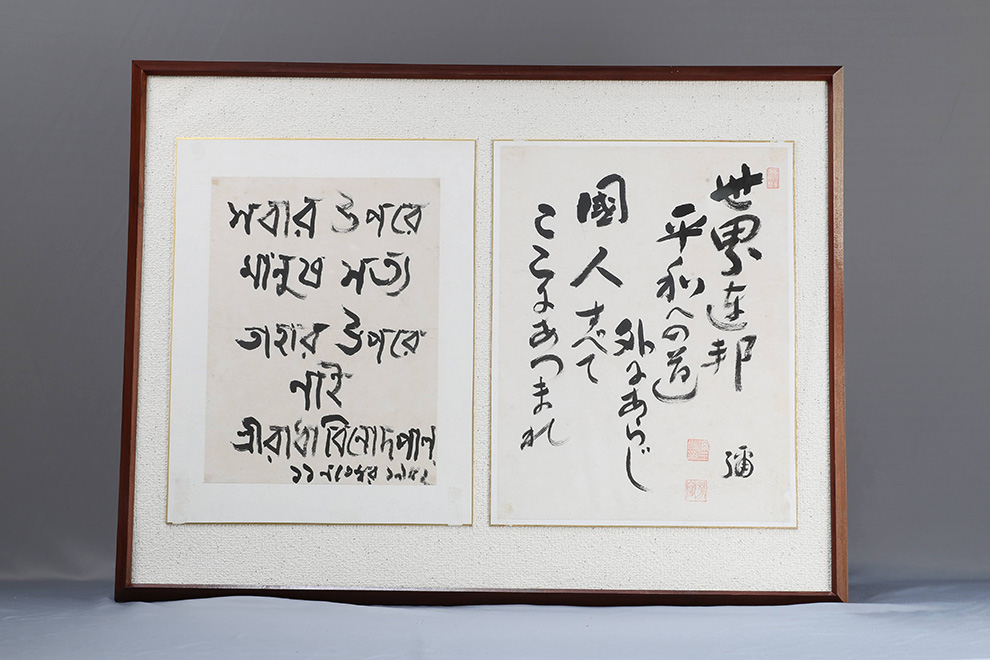 সবার উপরে
মানুষ সত্য
তাহার উপরে
নাই
শ্রীরাধাবিনোদপাল
১১ নভেম্বর ১৯৫২
世界連邦
平和への道
外にあらじ
國人すべて
ここにあつまれ
彌